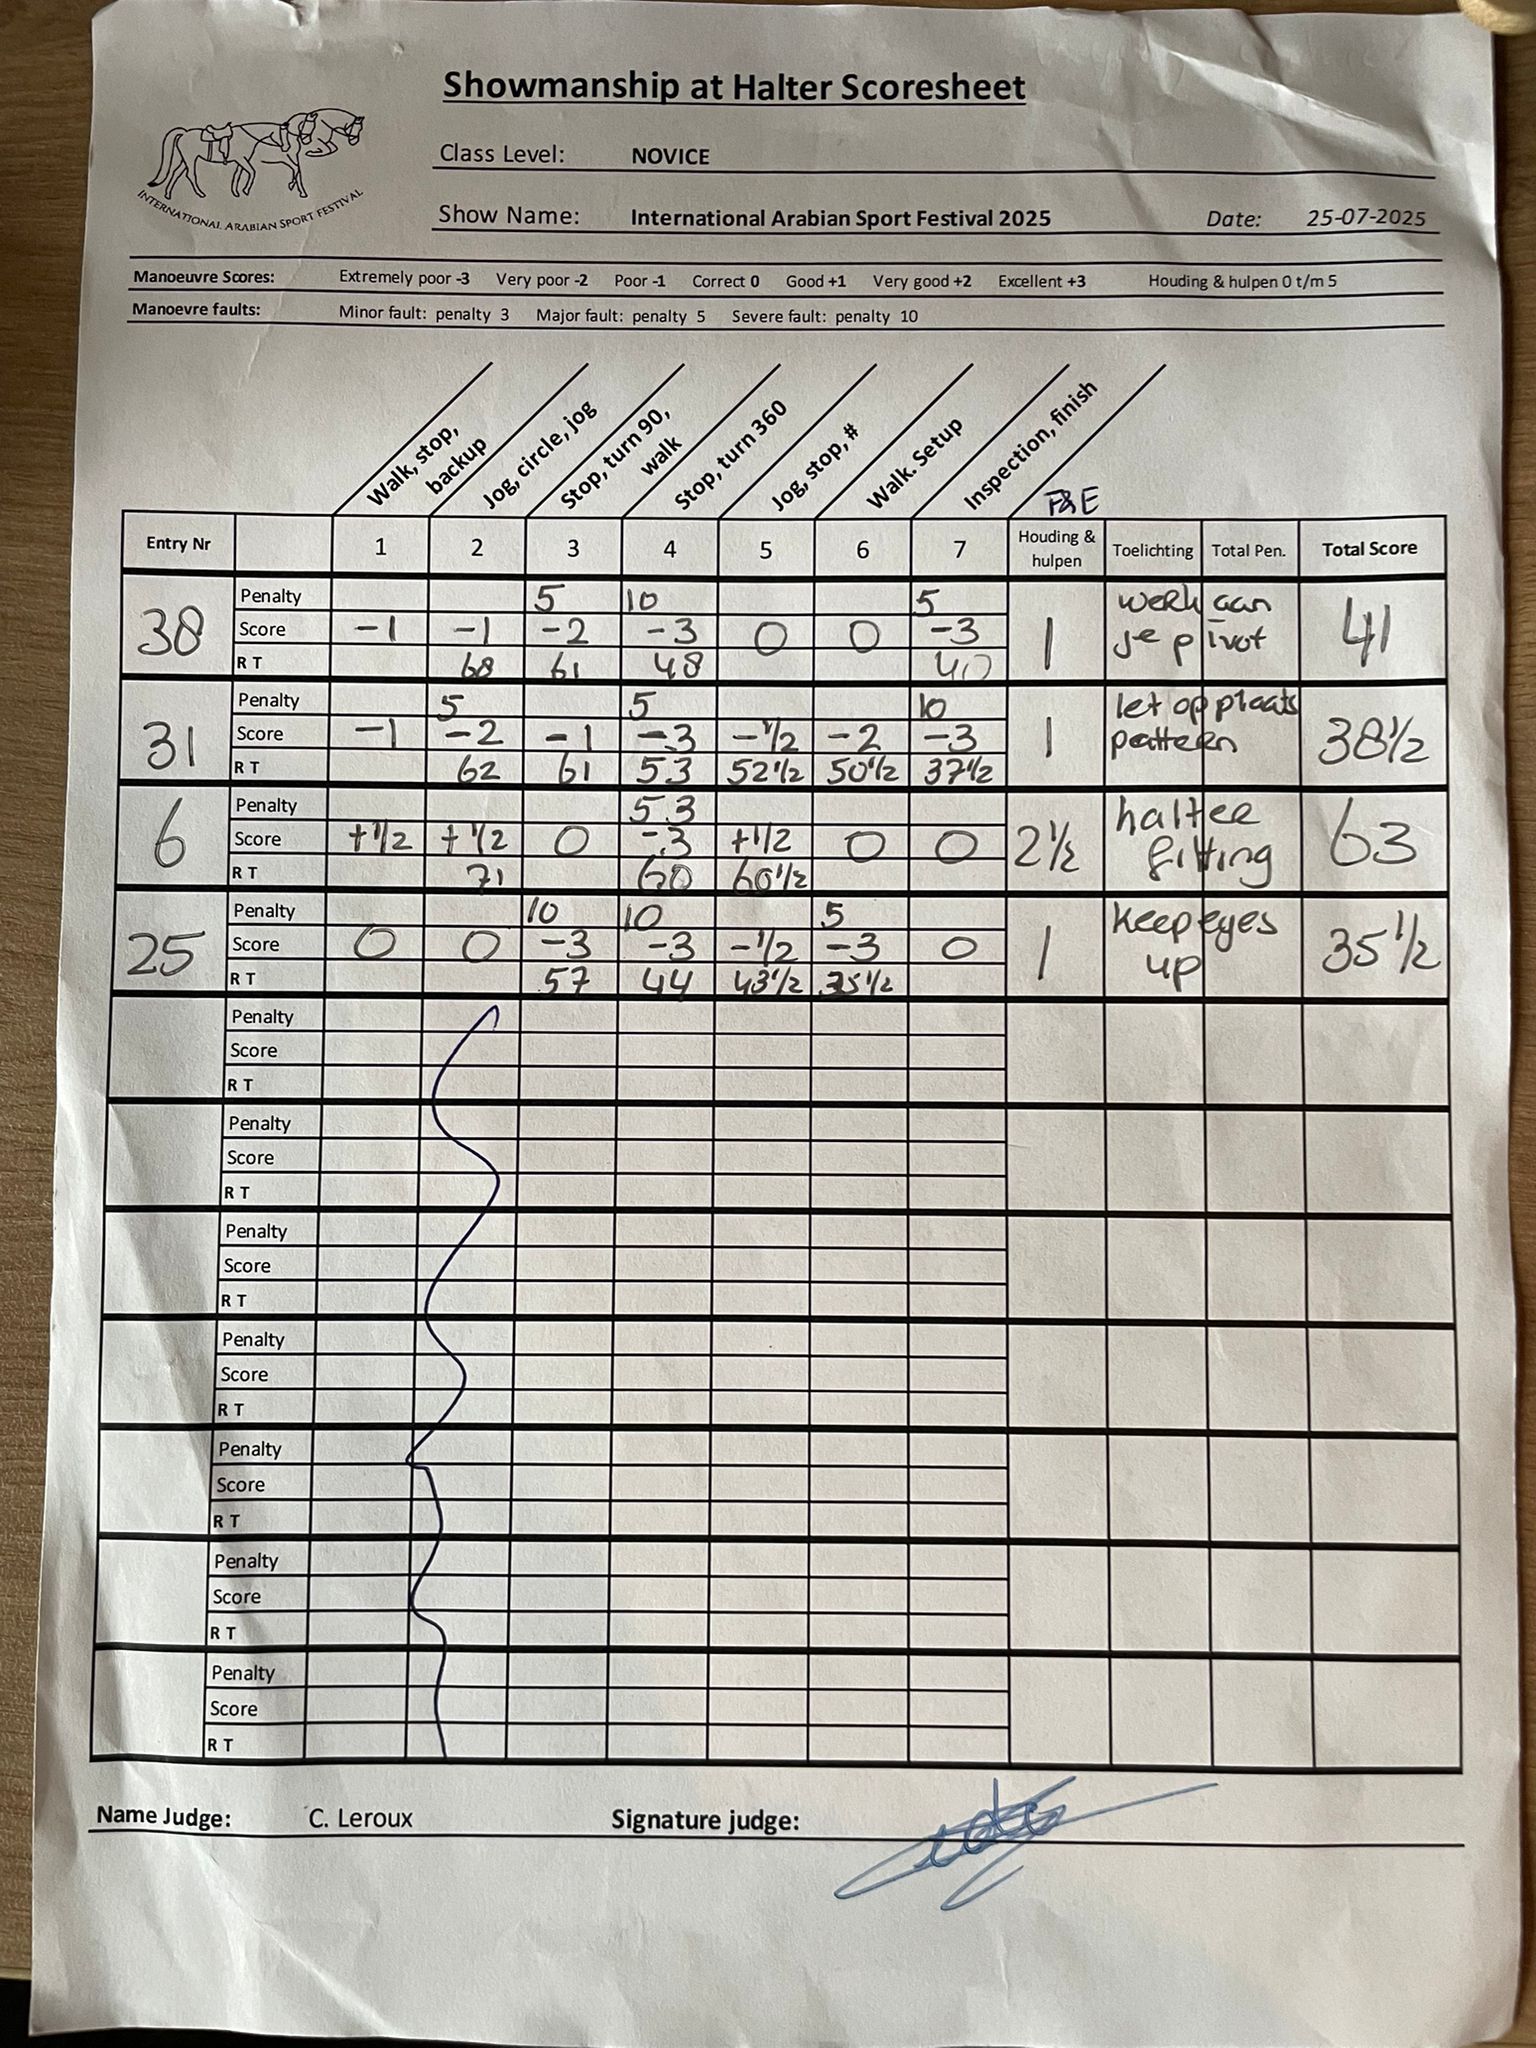 Showmanship at Halter Scoresheet
INTERNATIONAL ARABIAN SPORT FESTIVAL
Class Level: NOVICE
Show Name: International Arabian Sport Festival 2025 Date: 25-07-2025
Manoeuvre Scores: Extremely poor -3 Very poor -2 Poor -1 Correct 0 Good +1 Very good +2 Excellent +3 Houding & hulpen 0 t/m 5
Manoevre faults: Minor fault: penalty 3 Major fault: penalty 5 Severe fault: penalty 10
Walk, stop, backup
Jog, circle, jog
Stop, turn 90, walk
Stop, turn 360
Jog, stop, #
Walk. Setup
Inspection, finish
F&E
Entry Nr 1 2 3 4 5 6 7 Houding & hulpen Toelichting Total Pen. Total Score
38 1 werk aan je pivot 41
Penalty 5 10 5
Score -1 -1 -2 -3 0 0 -3
R T 68 61 48 40
31 1 let op plaats pattern 38 1/2
Penalty 5 5 10
Score -1 -2 -1 -3 -1/2 -2 -3
R T 62 61 53 52 1/2 50 1/2 37 1/2
6 2 1/2 halter fitting 63
Penalty 5 3
Score +1/2 +1/2 0 -3 +1/2 0 0
R T 71 60 60 1/2
25 1 keep eyes up 35 1/2
Penalty 10 10 5
Score 0 0 -3 -3 -1/2 -3 0
R T 57 44 43 1/2 35 1/2
Penalty
Score
R T
Penalty
Score
R T
Penalty
Score
R T
Penalty
Score
R T
Penalty
Score
R T
Penalty
Score
R T
Penalty
Score
R T
Name Judge: C. Leroux Signature judge: